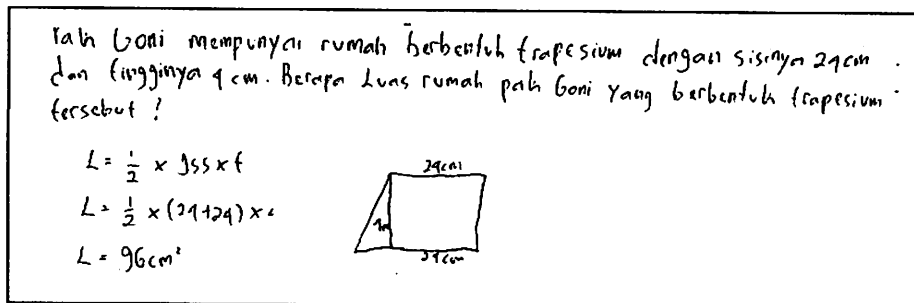 Pak Goni mempunyai rumah berbentuk trapesium dengan sisinya 24cm.
dan tingginya 4 cm. Berapa Luas rumah pak Goni yang berbentuk trapesium
tersebut ?
L = 1/2 × jss × t
L = 1/2 × (24+24) × 4
L = 96cm²
24cm
4cm
24cm